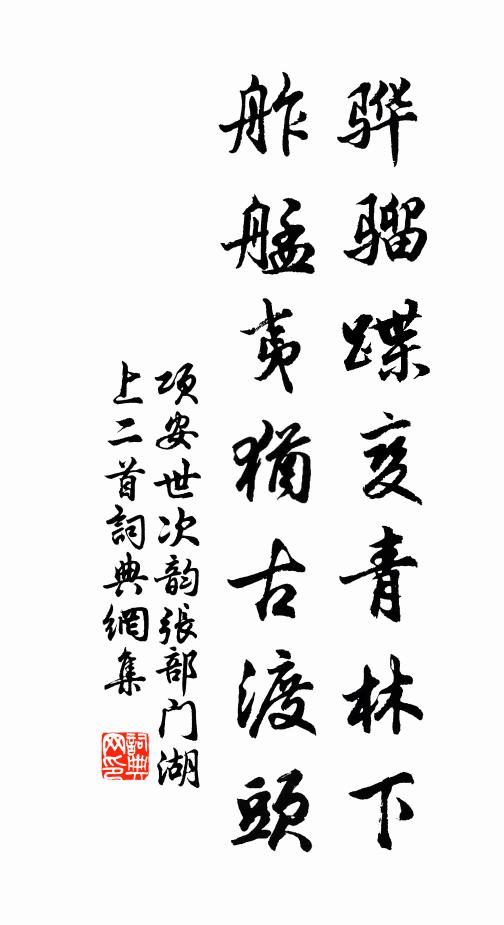 骅骝蹀变青林下
舴艋夷犹古渡頭
项安世次韵張部门湖
上二首詞典網集
詞典
网印